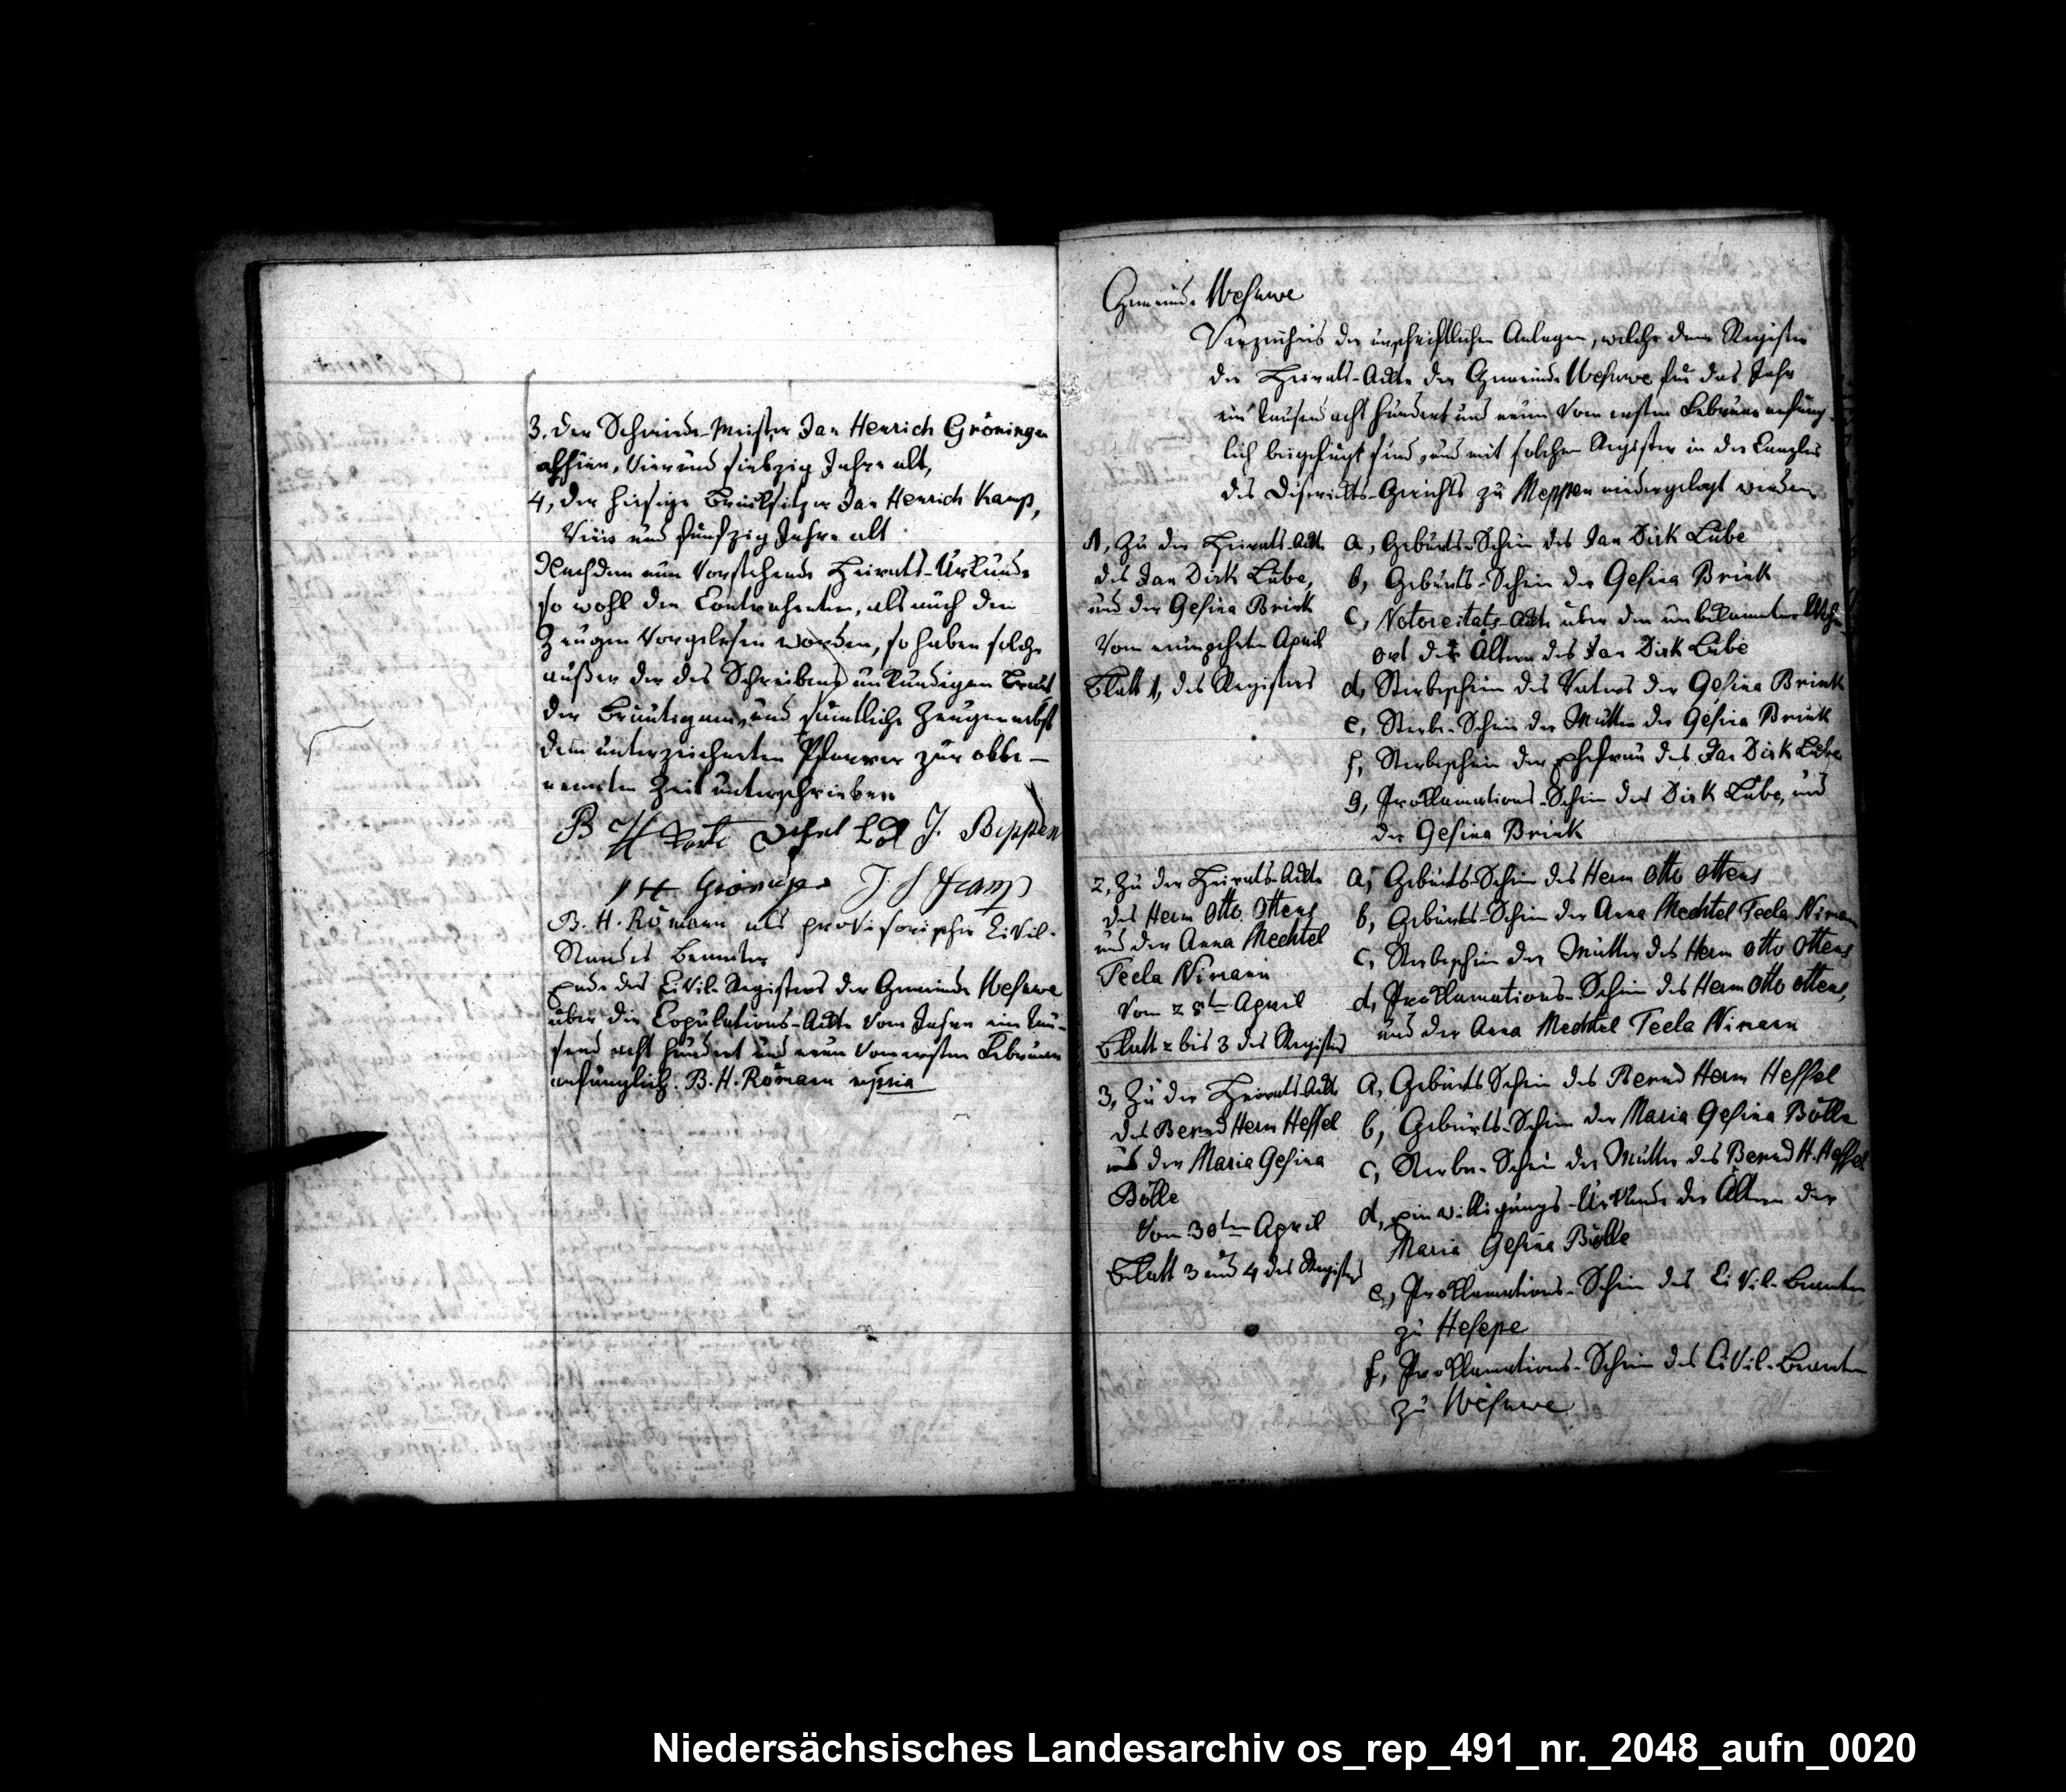 3. der Schmiede-Meister Jan Henrich Gröningen
allhier, Vier und siebzig Jahre alt,
4, der hiesige Brinksitzer Jan Henrich Kamp,
Vier und funfzig Jahre alt
Nachdem nun Vorstehende Heirats-Urkunde
so wohl den Contrahenten, als auch den
Zeugen Vorgelesen worden, so haben solche
außer der des Schreibens unkundigen Braut
der Bräutigam, und sämtliche Zeugen nebst
dem unterzeichneten Pfarrer zur obbe-
nannten Zeit unterschrieben
B H J. Beppen
B. H. Römann als provisorischer Civil-
Standes Beamter
Ende des Civil-Registers der Gemeinde Wesuwe
über die Copulations-Ackte Vom Jahre ein tau-
send acht hundert und neun Vom ersten Februar
anfänglich. B. H. Römann
Gemeinde Wesuwe
Verzeichnis der schriftlichen Anlagen, welche dem Register
der Heirats-Ackte der Gemeinde Wesuwe fur das Jahr
ein tausend acht hundert und neun Vom ersten Februar anfäng-
lich beigefügt sind, und mit solchem Register in der Canzlei
des Districkts-Gerichts zu Meppen niedergelegt werden
1, Zu der Heirats-Ackte
des Jan Dirk Lübe,
und der Gesina Brink
Vom neunzehnten April
Blatt 1, des Registers
a, Geburts-Schein des Jan Dirk Lübe
b, Geburts-Schein der Gesina Brink
c, Notoreitats-Ackte über den unbekannten Wohn-
ort der Ältern des Jan Dirk Lübe
d, Sterbeschein des Vaters der Gesina Brink
e, Sterbe-Schein der Mutter der Gesina Brink
f, Sterbeschein der Ehefrau des Jan Dirk Lübe
g, Procklamations-Schein des Dirk Lübe, und
der Gesina Brink
2, Zu der Heirats-Ackte
des Herm Otto Ottens
und der Anna Mechtel
Tecla Nimann
Vom 25ten April
Blatt 2 bis 3 des Registers
a, Geburts-Schein des Herm Otto Ottens
b, Geburts-Schein der Anna Mechtel Tecla Nimann
c, Sterbeschein der Mutter des Herm Otto Ottens
d, Procklamations-Schein des Herm Otto Ottens,
und der Anna Mechtel Tecla Nimann
3, Zu der Heirats-Ackte
des Bernd Herm Hessel
und der Maria Gesina
Bölle
Vom 30ten April
Blatt 3 und 4 des Registers
a, Geburts Schein des Bernd Herm Hessel
b, Geburts-Schein der Maria Gesina Bölle
c, Sterbe-Schein der Mutter des Bernd H. Hessel
d, Einwilligungs-Urkunde der Ältern der
Maria Gesina Bölle
e, Procklamations-Schein des Civil-Beamten
zu Hesepe
f, Procklamations-Schein des Civil-Beamten
zu Wesuwe
Niedersächsisches Landesarchiv os_rep_491_nr._2048_aufn_0020